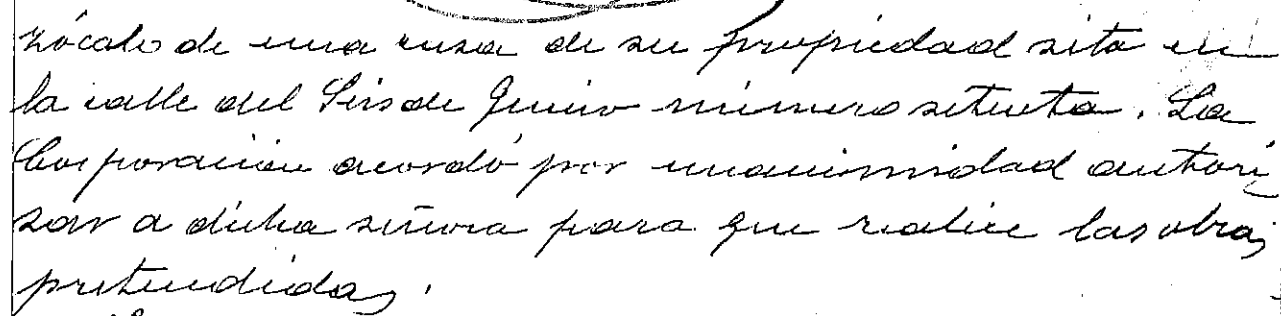 zócalo de una casa de su propiedad sita en
la calle del Seis de Junio número setenta. La
Corporación acordó por unanimidad autori
zar a dicha señora para que realice las obras
pretendidas.